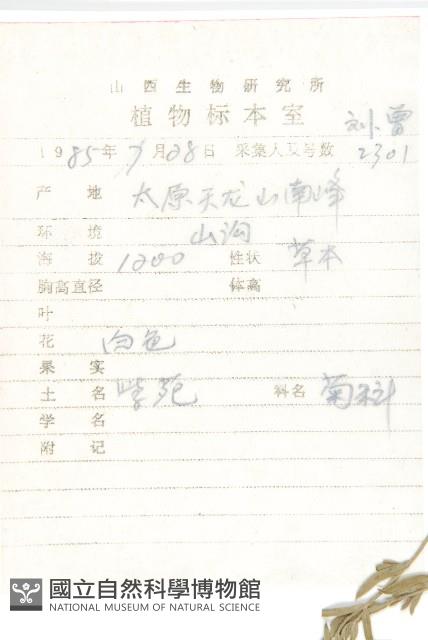 山西生物研究所
植物标本室
刘 曾
1985年7月28日 采集人及号数 2301
产 地 太原天龙山南峰
环 境 山沟
海 拔 1200 性状 草本
胸高直径 体高
叶
花 白色
果 实
土 名 紫苑 科名 菊科
学 名
附 记
國立自然科學博物館
NATIONAL MUSEUM OF NATURAL SCIENCE